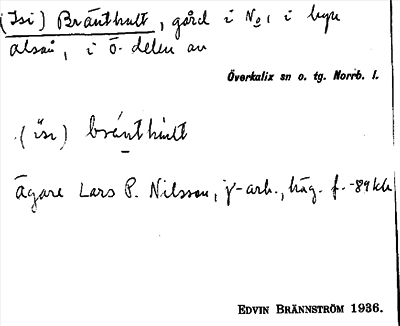 (Isi) Bränthult, gård i No 1 i byn
alsån, i ö. delen av
Överkalix sn o. tg. Norrb. l.
(isi) bränthult
Ägare Lars P. Nilsson, j-arb., häg. f. -89
EDVIN BRÄNNSTRÖM 1936.